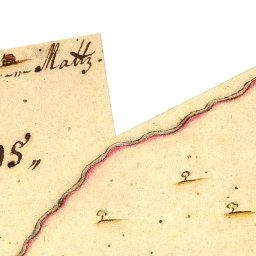 Mattz.
os,,